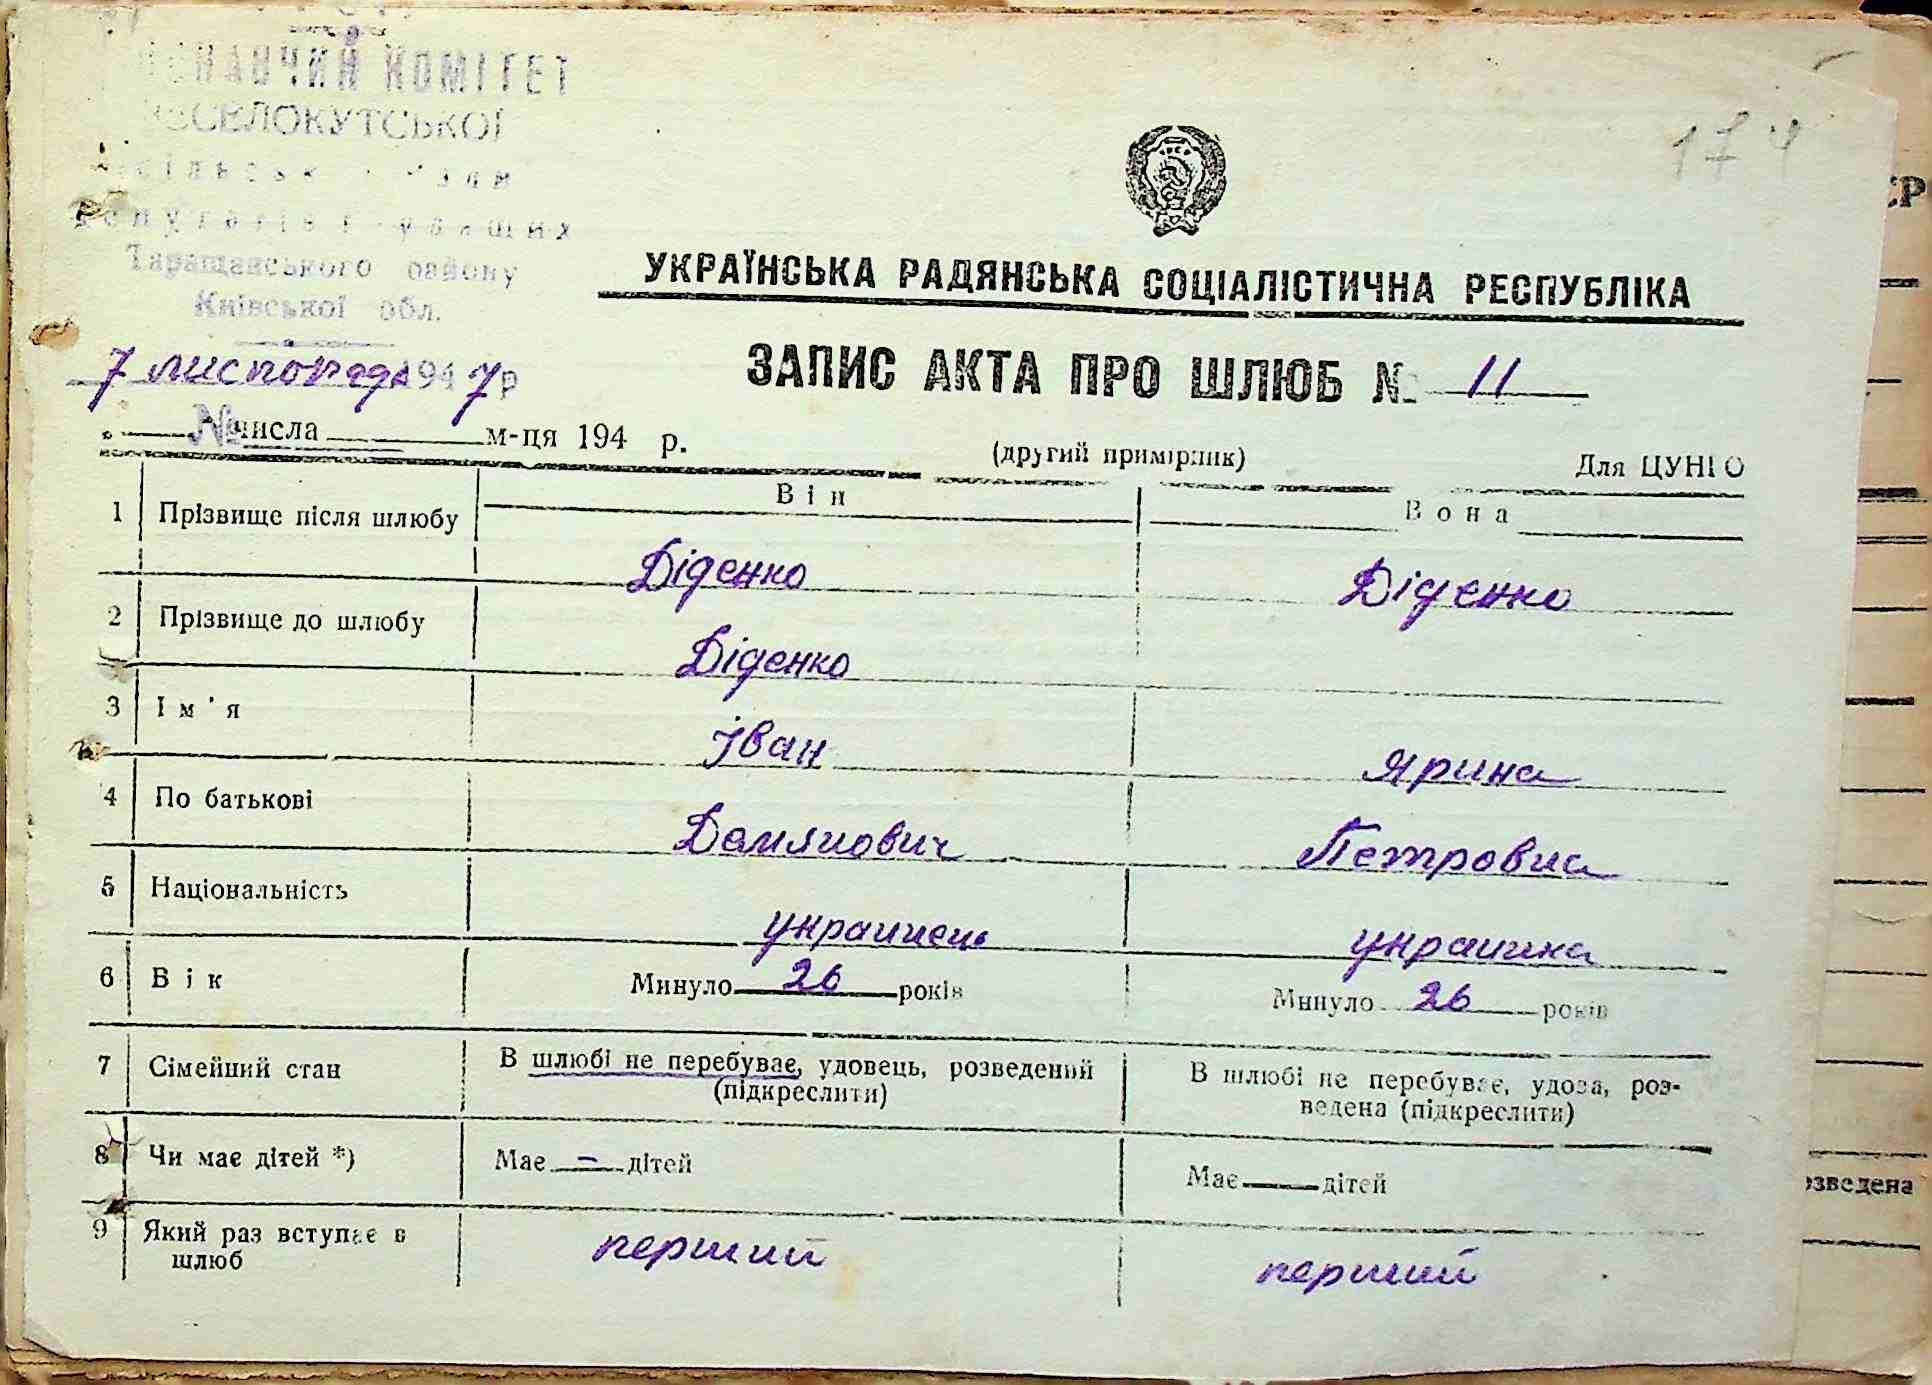 КОМІТЕТ
Таращанського району
Київської обл.
7 листопада 1947 р
№
числа м-ця 194 р.
174
УКРАЇНСЬКА РАДЯНСЬКА СОЦІАЛІСТИЧНА РЕСПУБЛІКА
ЗАПИС АКТА ПРО ШЛЮБ № 11
(другий примірник)
Для ЦУНГО
Він Вона
1 Прізвище після шлюбу Діденко Діденко
2 Прізвище до шлюбу Діденко
3 Ім'я Іван Ярина
4 По батькові Демянович Петровна
5 Національність украинець украинка
6 Вік Минуло 26 років Минуло 26 років
7 Сімейний стан В шлюбі не перебуває, удовець, розведений (підкреслити) В шлюбі не перебуває, удова, роз-
ведена (підкреслити)
8 Чи має дітей *) Має – дітей Має дітей
9 Який раз вступає в шлюб перший перший